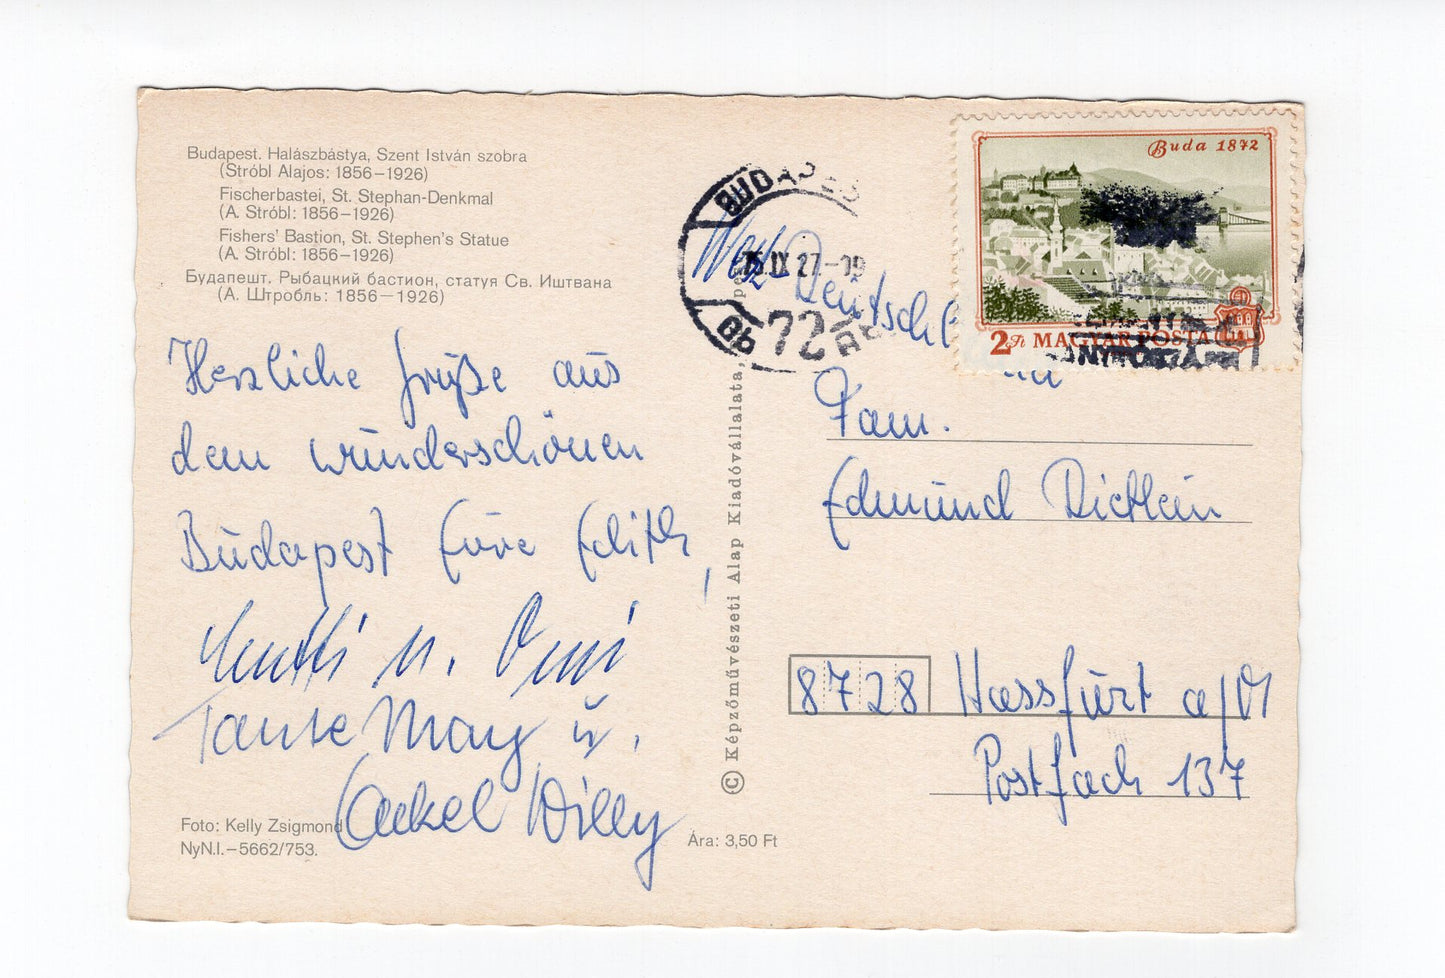 Budapest. Halászbástya, Szent István szobra
(Stróbl Alajos: 1856–1926)
Fischerbastei, St. Stephan-Denkmal
(A. Stróbl: 1856–1926)
Fishers' Bastion, St. Stephen's Statue
(A. Stróbl: 1856–1926)
Будапешт. Рыбацкий бастион, статуя Св. Иштвана
(А. Штробль: 1856–1926)
Herzliche Grüße aus
dem wunderschönen
Budapest Eure Edith,
u. Omi
Tante Mary u.
Onkel Willy
Foto: Kelly Zsigmond
NyN.I.–5662/753.
Ára: 3,50 Ft
© Képzőművészeti Alap Kiadóvállalata,
BUDAPES
75.IX 27.-19
72
Buda 1872
2 Ft MAGYAR POSTA
West
Deutschl
Fam.
Edmund Dietlein
8728 Hassfurt a/M
Postfach 137